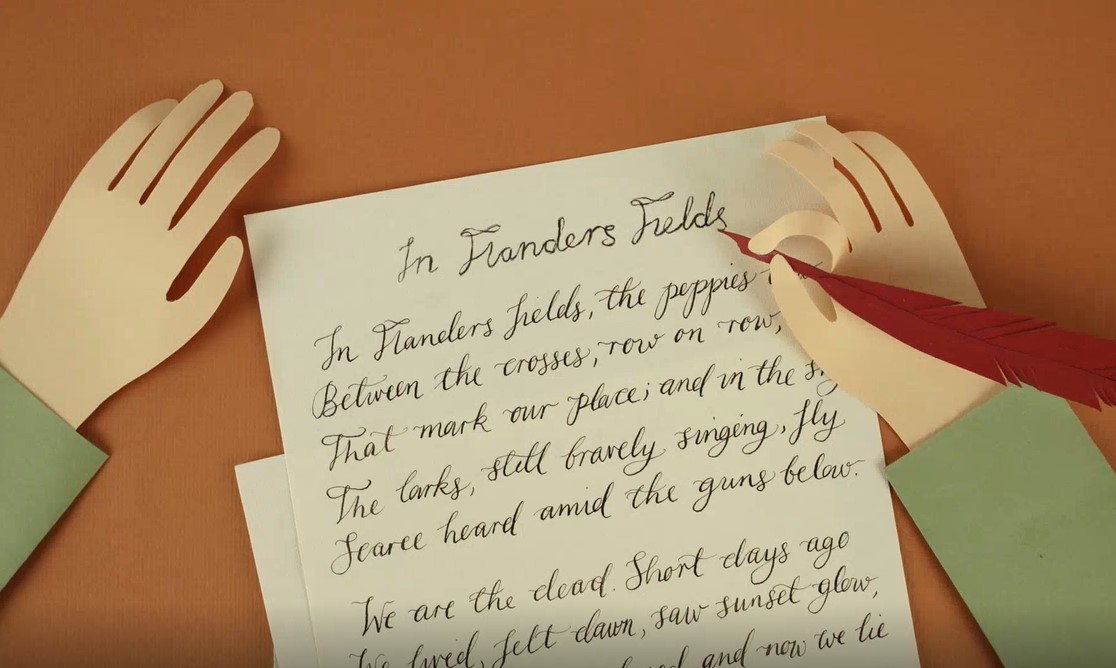 In Flanders Fields
In Flanders fields, the peppies
Between the crosses, row on row,
That mark our place; and in the
The larks, still bravely singing, fly
Scarce heard amid the guns below.
We are the dead. Short days ago
We lived, felt dawn, saw sunset glow,
and now we lie